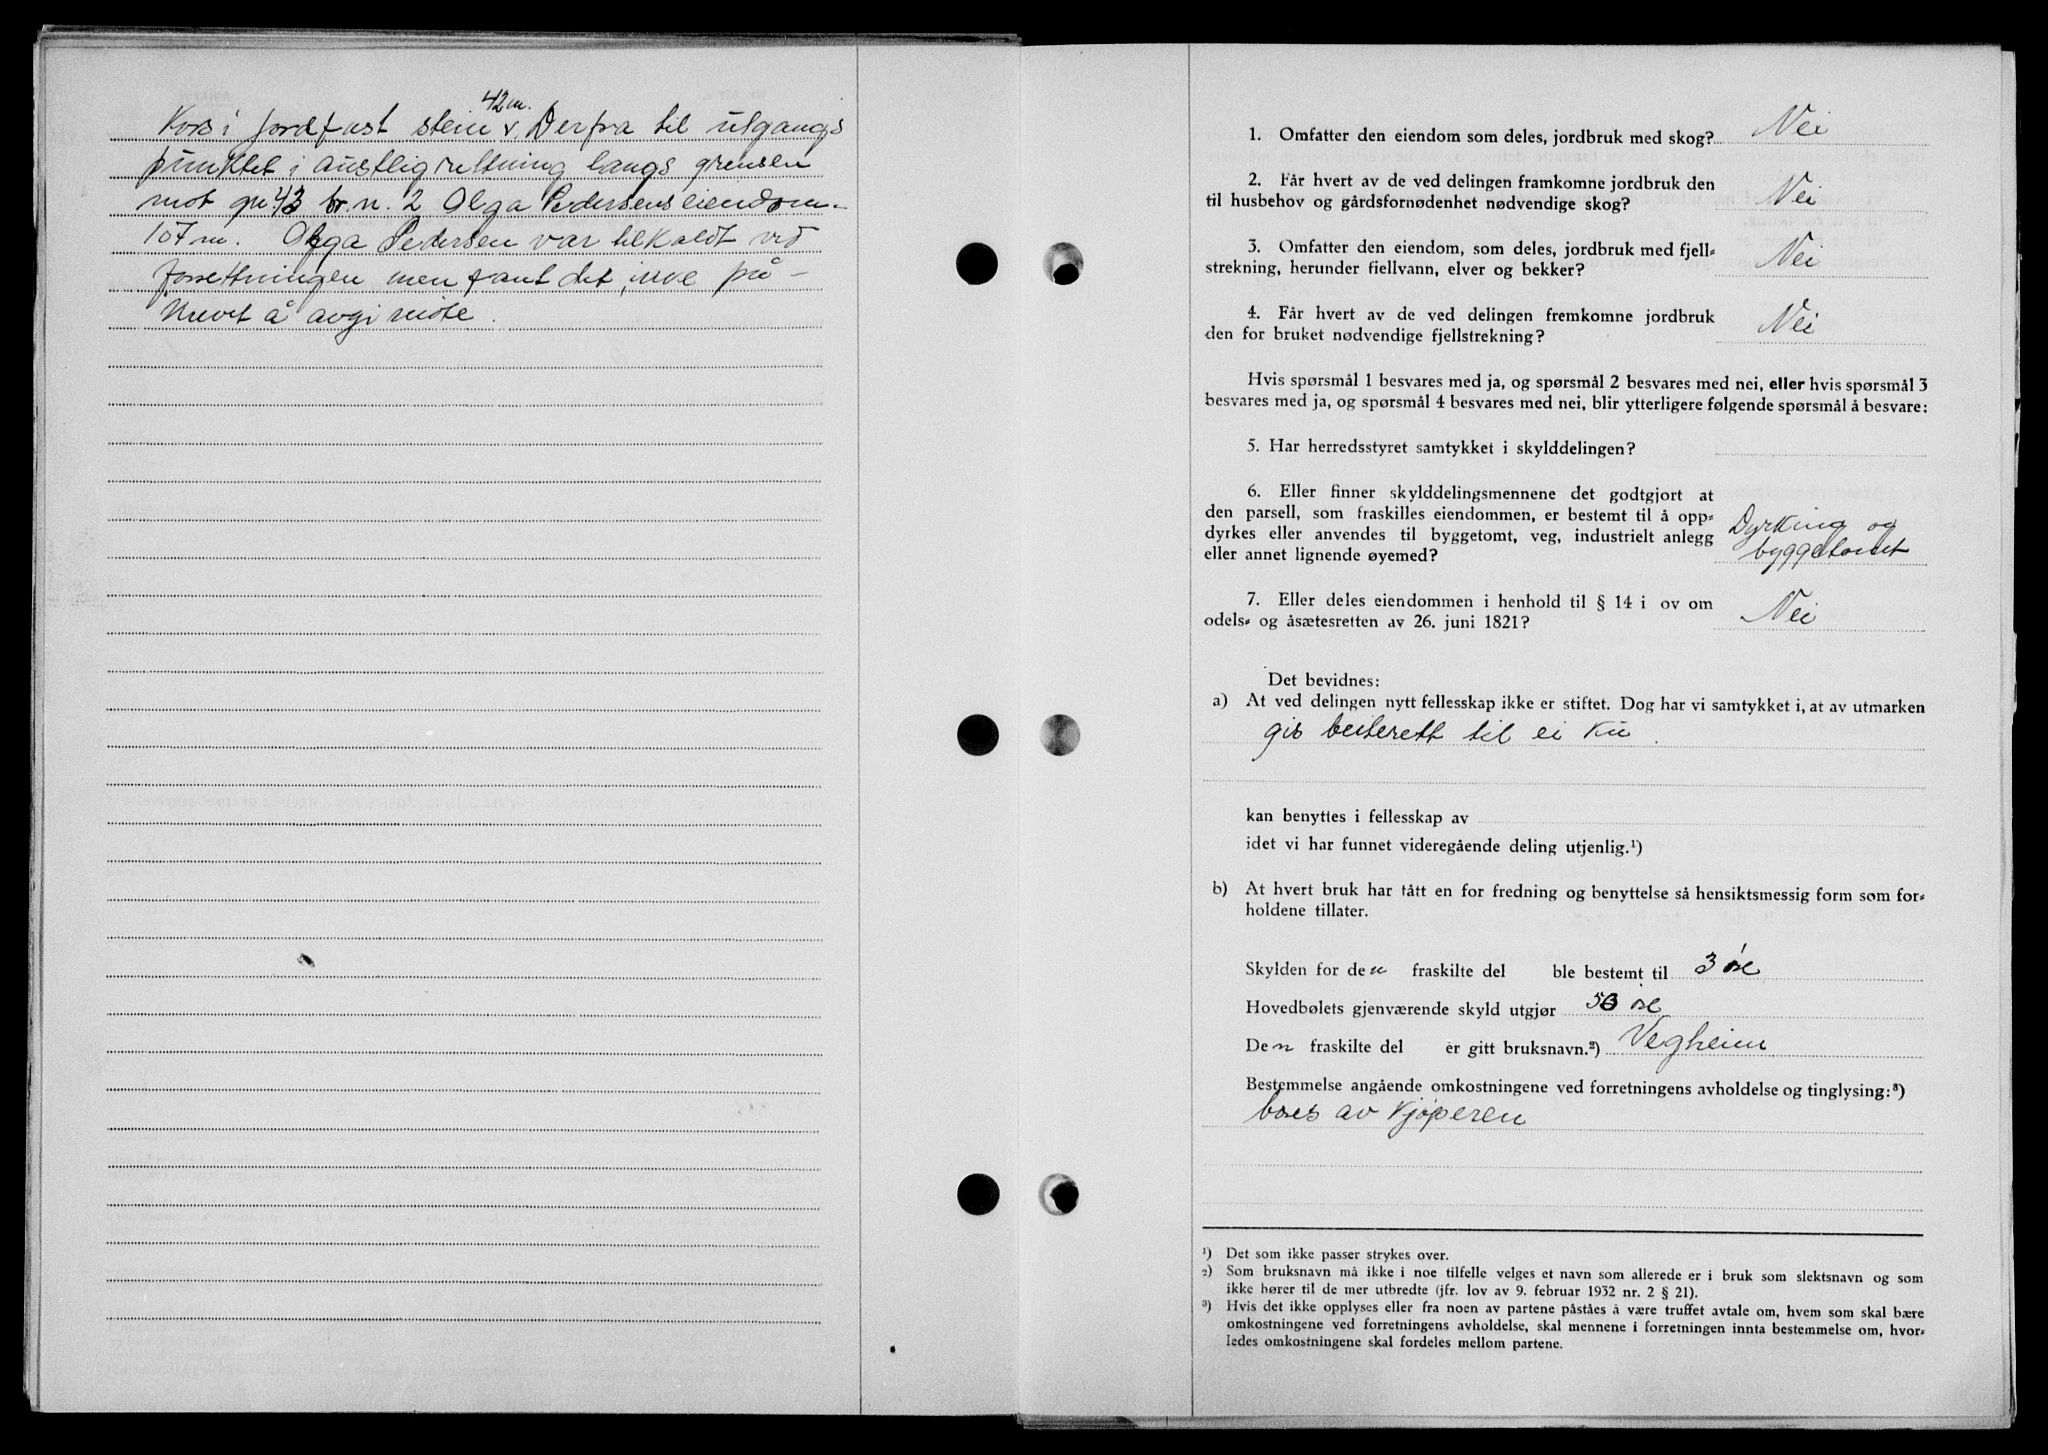 42 m.
Kors i jordfast stein v. Derfra til utgangs
punktet i austlig rettning langs grensen
mot gn. 43 br. n. 2 Olga Pedersens eiendom -
107 m. Olga Pedersen var tilkaldt ved
forrettningen men fant det ikke på-
krevet å avgi møte.
1. Omfatter den eiendom som deles, jordbruk med skog? Nei
2. Får hvert av de ved delingen framkomne jordbruk den
til husbehov og gårdsfornødenhet nødvendige skog? Nei
3. Omfatter den eiendom, som deles, jordbruk med fjell-
strekning, herunder fiellvann, elver og bekker? Nei
4. Får hvert av de ved delingen fremkomne jordbruk
den for bruket nødvendige fjellstrekning? Nei
Hvis spørsmål 1 besvares med ja, og spørsmål 2 besvares med nei, eller hvis spørsmål 3
besvares med ja, og spørsmål 4 besvares med nei, blir ytterligere følgende spørsmål å besvare:
5. Har herredsstyret samtykket i skylddelingen?
6. Eller finner skylddelingsmennene det godtgjort at
den parsell, som fraskilles eiendommen, er bestemt til å opp-
dyrkes eller anvendes til byggetomt, veg, industrielt anlegg
eller annet lignende øyemed?
Dyrking og
byggetomt
7. Eller deles eiendommen i henhold til § 14 i ov om
odels- og åsætesretten av 26. juni 1821? Nei
Det bevidnes:
a) At ved delingen nytt fellesskap ikke er stiftet. Dog har vi samtykket i, at av utmarken
gis beiterett til ei ku.
kan benyttes i fellesskap av
idet vi har funnet videregående deling utjenlig.¹)
b) At hvert bruk har tått en for fredning og benyttelse så hensiktsmessig form som for-
holdene tillater.
Skylden for den fraskilte del ble bestemt til 3 øre
Hovedbølets gjenværende skyld utgjør 50 øre
Den fraskilte del er gitt bruksnavn.²) Vegheim
Bestemmelse angående omkostningene ved forretningens avholdelse og tinglysing:³)
bæres av kjøperen
¹) Det som ikke passer strykes over.
²) Som bruksnavn må ikke i noe tilfelle velges et navn som allerede er i bruk som slektsnavn og som
ikke hører til de mer utbredte (jfr. lov av 9. februar 1932 nr. 2 § 21).
³) Hvis det ikke opplyses eller fra noen av partene påståes å være truffet avtale om, hvem som skal bære
omkostningene ved forretningens avholdelse, skal mennene i forretningen innta bestemmelse om, hvor-
ledes omkostningene skal fordeles mellom partene.